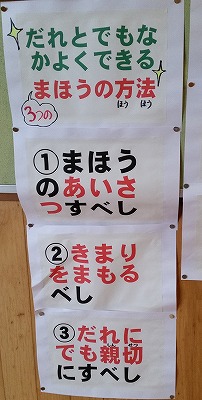 だれとでもな
かよくできる
3つの
まほうの方法
ほう ほう
①まほう
のあいさ
つすべし
②きまり
をまもる
べし
③だれに
でも親切
しんせつ
にすべし